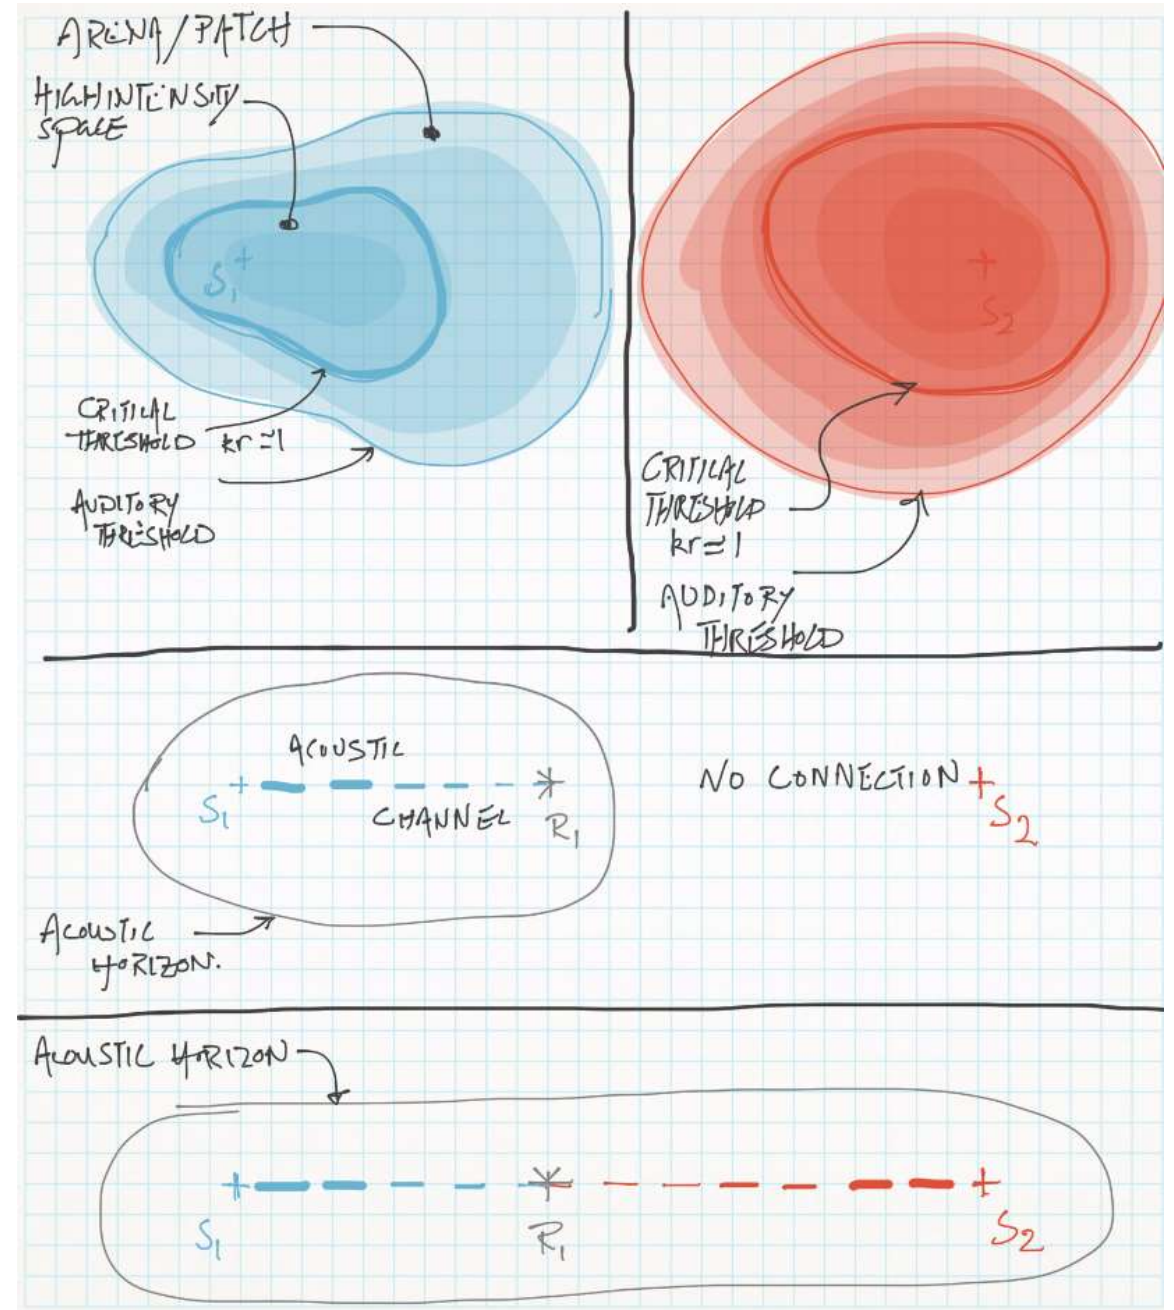 ARENA/PATCH
HIGH INTENSITY
SPACE
S1
CRITICAL
THRESHOLD kr≃1
AUDITORY
THRESHOLD
S2
CRITICAL
THRESHOLD
kr≃1
AUDITORY
THRESHOLD
ACOUSTIC
CHANNEL
S1
R1
NO CONNECTION
S2
ACOUSTIC
HORIZON.
ACOUSTIC HORIZON
S1
R1
S2